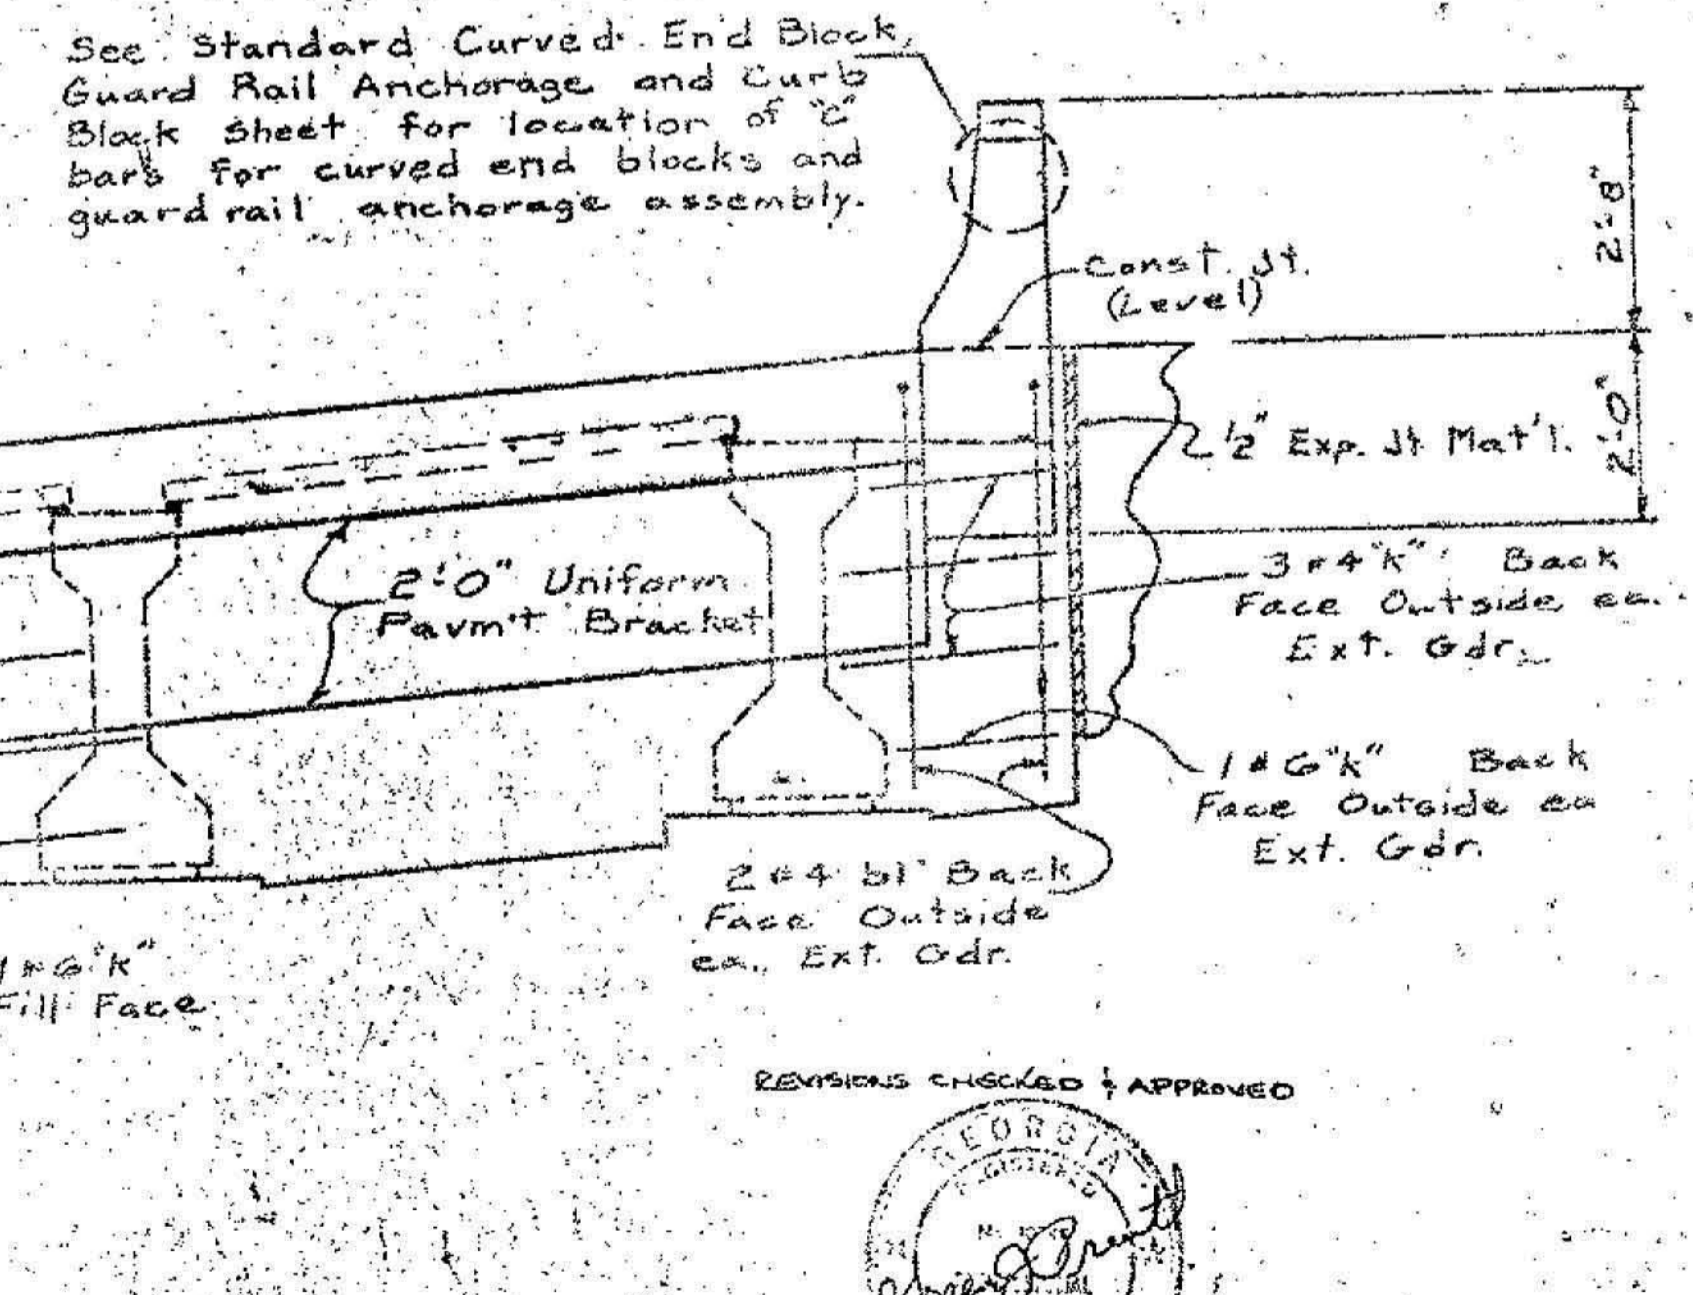 See Standard Curved End Block,
Guard Rail Anchorage and Curb
Block Sheet for location of "C"
bars for curved end blocks and
guard rail anchorage assembly.
2'-8"
Const. Jt.
(Level)
2'-0"
2 1/2" Exp. Jt Mat'l.
2'-0" Uniform
Pavm't Bracket
3 #4 "k" Back
Face Outside ea.
Ext. Gdr.
1 #6 "k" Back
Face Outside ea
Ext. Gdr.
2 #4 b1 Back
Face Outside
ea. Ext. Gdr.
1 #6 "k"
Fill Face
REVISIONS CHECKED & APPROVED
GEORGIA
REGISTERED